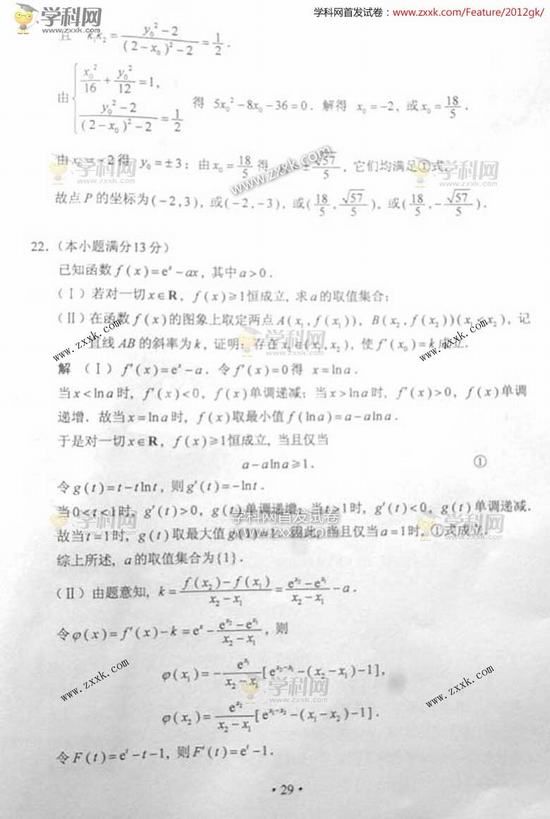 学科网 www.zxxk.com
学科网首发试卷:www.zxxk.com/Feature/2012gk/
且 k₁k₂ = (y₀²-2)/((2-x₀)²-2) = 1/2.
由 { x₀²/16 + y₀²/12 = 1, (y₀²-2)/((2-x₀)²-2) = 1/2 得 5x₀²-8x₀-36=0. 解得 x₀=-2, 或x₀=18/5.
由x₀=-2得 y₀=±3; 由x₀=18/5 得 ±√57/5, 它们均满足①式.
故点P的坐标为(-2,3), 或(-2,-3), 或(18/5, √57/5), 或(18/5, -√57/5).
22.(本小题满分13分)
已知函数 f(x)=eˣ-ax, 其中a>0.
(Ⅰ)若对一切x∈R, f(x)≥1恒成立, 求a的取值集合;
(Ⅱ)在函数f(x)的图象上取定两点A(x₁,f(x₁)), B(x₂,f(x₂))(x₁<x₂), 记
直线AB的斜率为k, 证明: 存在x₀∈(x₁,x₂), 使f′(x₀)=k成立.
解 (Ⅰ) f′(x)=eˣ-a. 令f′(x)=0得 x=lna.
当x<lna时, f′(x)<0, f(x)单调递减; 当x>lna时, f′(x)>0, f(x)单调
递增. 故当x=lna时, f(x)取最小值f(lna)=a-alna.
于是对一切x∈R, f(x)≥1恒成立, 当且仅当
a-alna≥1. ①
令g(t)=t-tlnt, 则g′(t)=-lnt.
当0<t<1时, g′(t)>0, g(t)单调递增; 当t>1时, g′(t)<0, g(t)单调递减.
学科网首发试卷
故当t=1时, g(t)取最大值g(1)=1. 因此, 当且仅当a=1时, ①式成立.
综上所述, a的取值集合为{1}.
(Ⅱ)由题意知, k = (f(x₂)-f(x₁))/(x₂-x₁) = (e^x₂-e^x₁)/(x₂-x₁) - a.
令φ(x)=f′(x)-k=eˣ-(e^x₂-e^x₁)/(x₂-x₁), 则
φ(x₁) = -e^x₁/(x₂-x₁)[e^(x₂-x₁)-(x₂-x₁)-1],
φ(x₂) = e^x₂/(x₂-x₁)[e^(x₁-x₂)-(x₁-x₂)-1].
令F(t)=eᵗ-t-1, 则F′(t)=eᵗ-1.
·29·